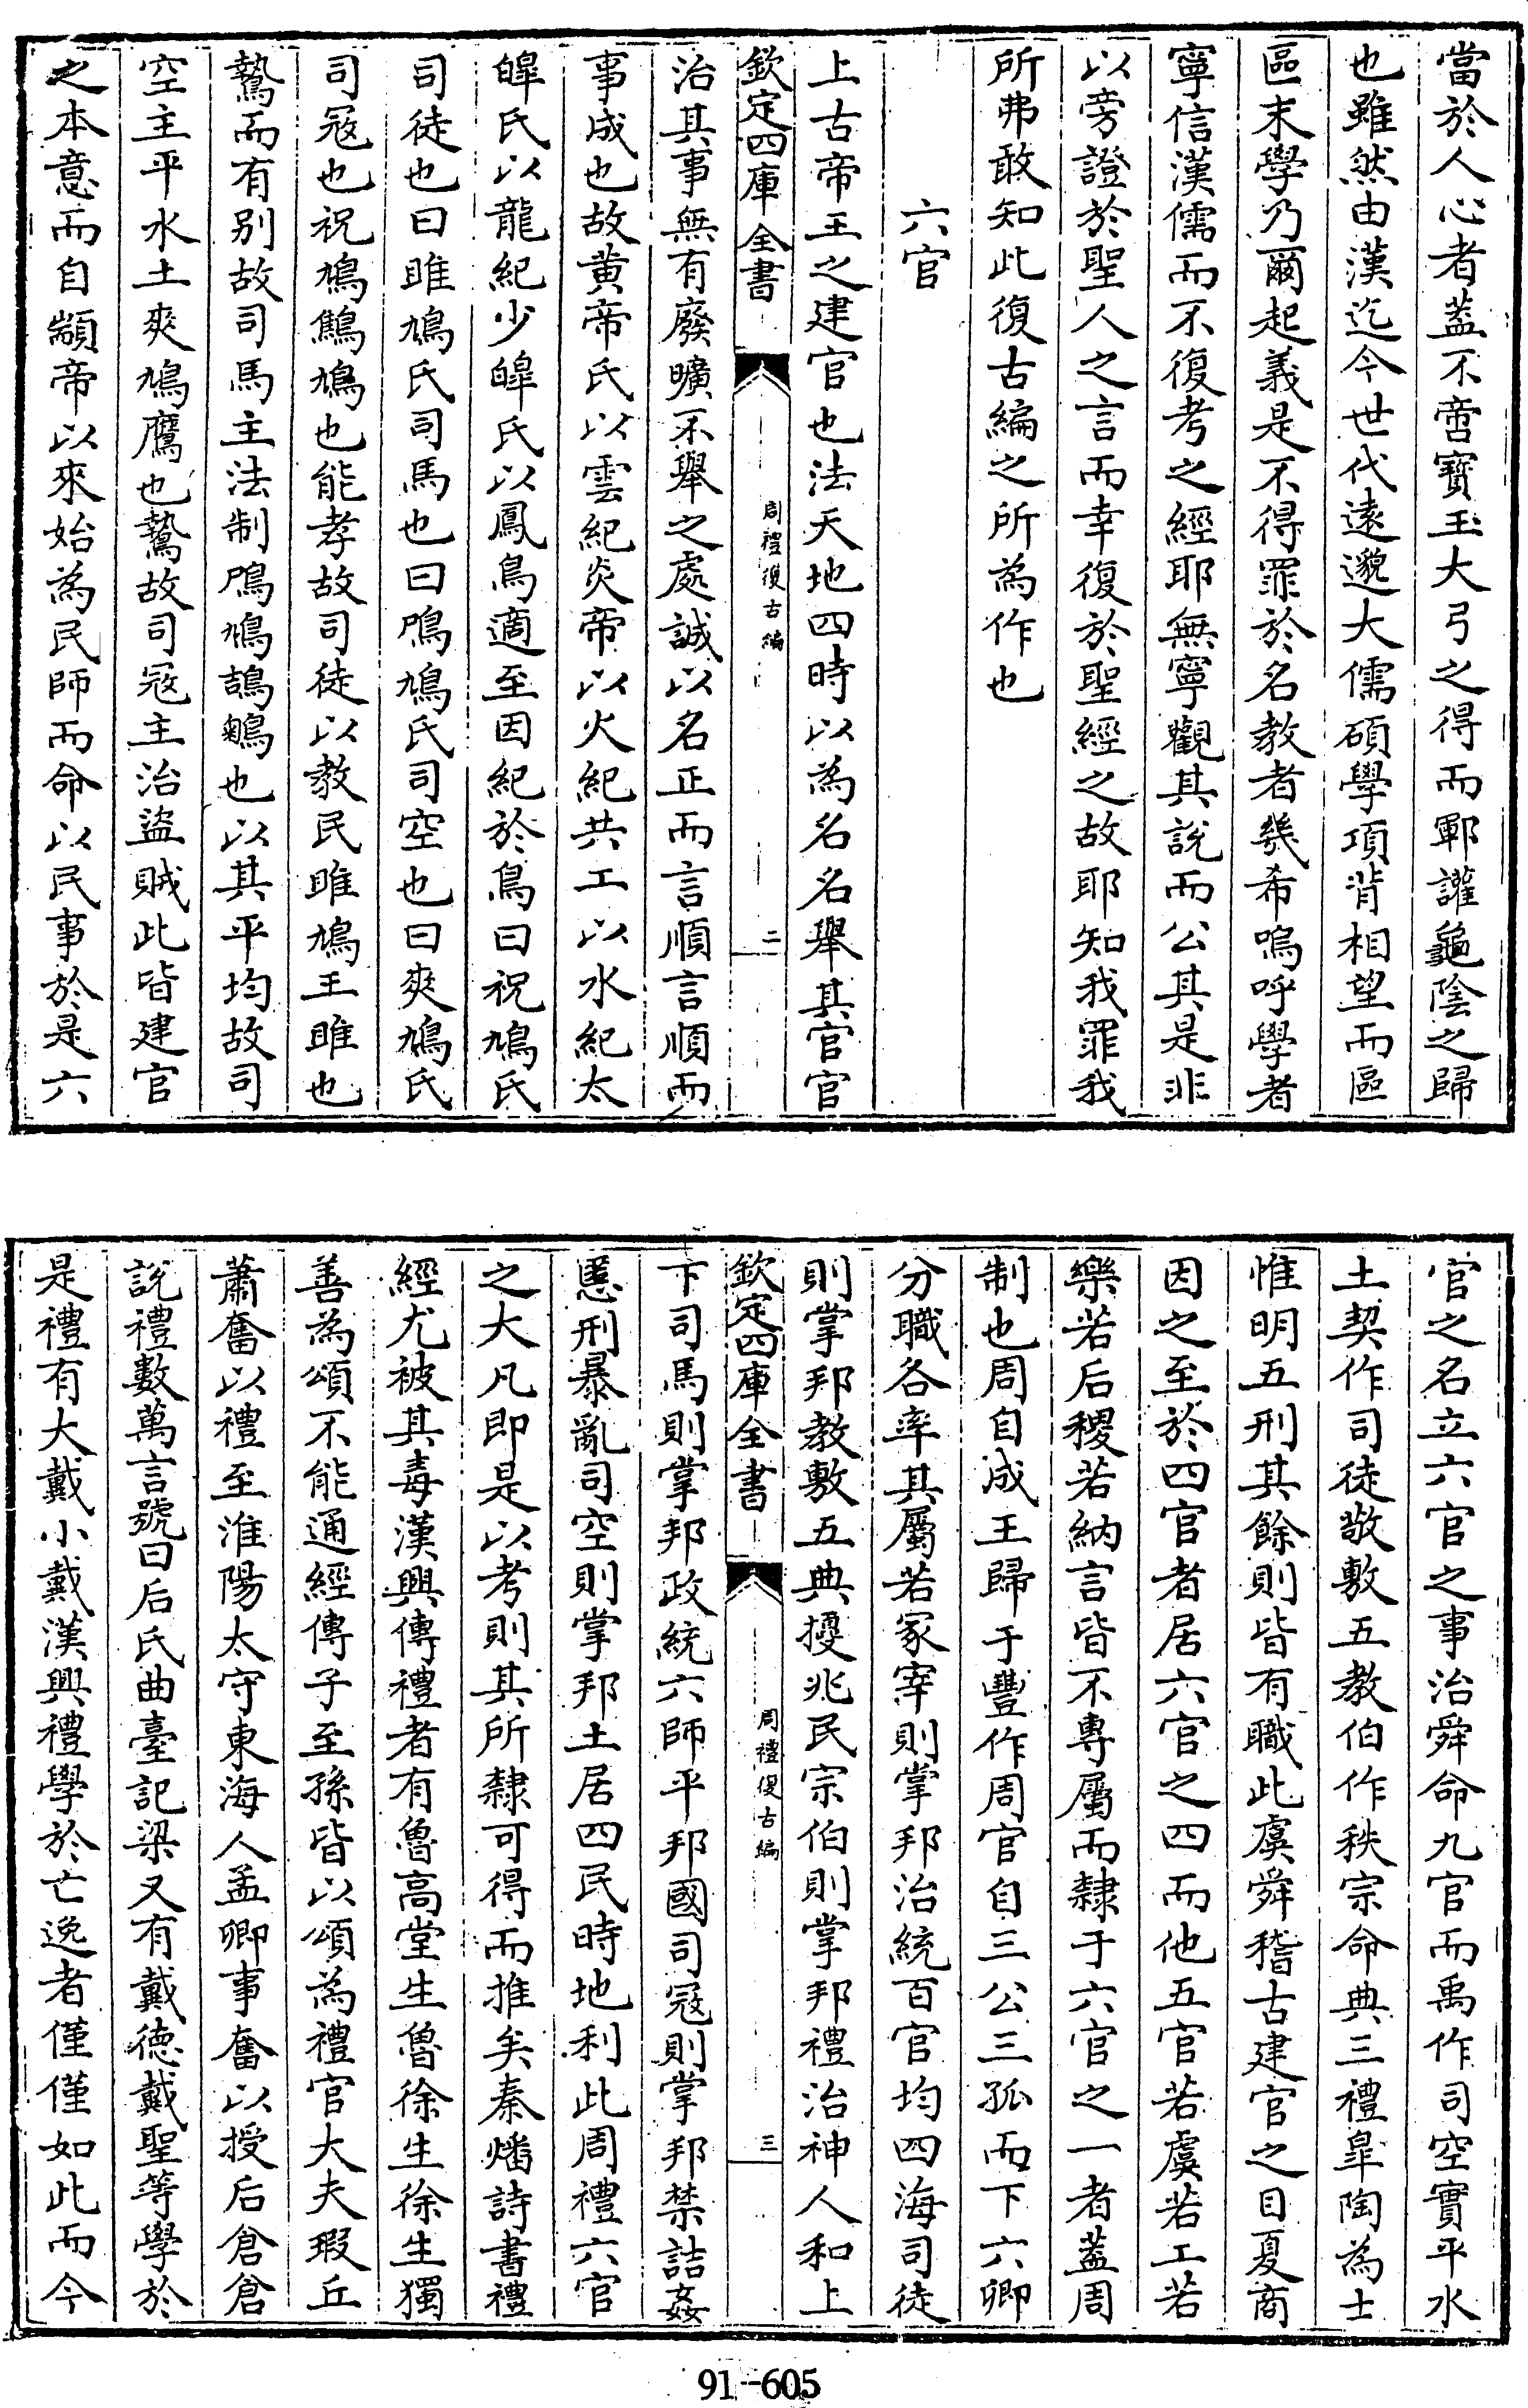 當於人心者蓋不啻寳玉大弓之得而鄆讙龜陰之歸
也雖然由漢迄今世代逺邈大儒碩學項背相望而區
區末學乃爾起義是不得罪於名教者幾希嗚呼學者
寧信漢儒而不復考之經耶無寧觀其說而公其是非
以旁證於聖人之言而幸復於聖經之故耶知我罪我
所弗敢知此復古編之所為作也
六官
上古帝王之建官也法天地四時以為名名舉其官官
欽定四庫全書
周禮復古編
二
治其事無有廢曠不舉之處誠以名正而言順言順而
事成也故黄帝氏以雲紀炎帝以火紀共工以水紀太
皥氏以龍紀少皥氏以鳳鳥適至因紀於鳥曰祝鳩氏
司徒也曰雎鳩氏司馬也曰鳲鳩氏司空也曰爽鳩氏
司冦也祝鳩鷦鳩也能孝故司徒以教民雎鳩王雎也
鷙而有别故司馬主法制鳲鳩鴶鵴也以其平均故司
空主平水土爽鳩鷹也鷙故司冦主治盜賊此皆建官
之本意而自顓帝以來始為民師而命以民事於是六
官之名立六官之事治舜命九官而禹作司空實平水
土契作司徒敬敷五教伯作秩宗命典三禮臯陶為士
惟明五刑其餘則皆有職此虞舜稽古建官之目夏商
因之至於四官者居六官之四而他五官若虞若工若
樂若后稷若納言皆不專屬而隸于六官之一者蓋周
制也周自成王歸于豐作周官自三公三孤而下六卿
分職各率其屬若冢宰則掌邦治統百官均四海司徒
則掌邦教敷五典擾兆民宗伯則掌邦禮治神人和上
欽定四庫全書
周禮復古編
三
下司馬則掌邦政統六師平邦國司冦則掌邦禁詰姦
慝刑暴亂司空則掌邦土居四民時地利此周禮六官
之大凡即是以考則其所隸可得而推矣秦燔詩書禮
經尤被其毒漢興傳禮者有魯高堂生魯徐生徐生獨
善為頌不能通經傳子至孫皆以頌為禮官大夫瑕丘
蕭奮以禮至淮陽太守東海人孟卿事奮以授后倉倉
說禮數萬言號曰后氏曲臺記梁又有戴德戴聖等學於
是禮有大戴小戴漢興禮學於亡逸者僅僅如此而今
91-605